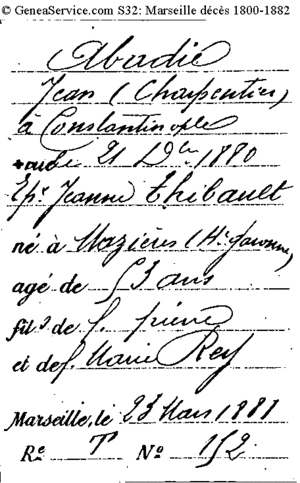 © GeneaService.com S32: Marseille décès 1800-1882
Abadie
Jean (Charpentier)
à Constantinople
21 Dbre 1880
Epx Jeanne Thibault
né à Mazières (Hte Garonne)
agé de 53 ans
fils de f. pierre
et de f. Marie Rey
Marseille, le 23 Mars 1881
Re T No 152